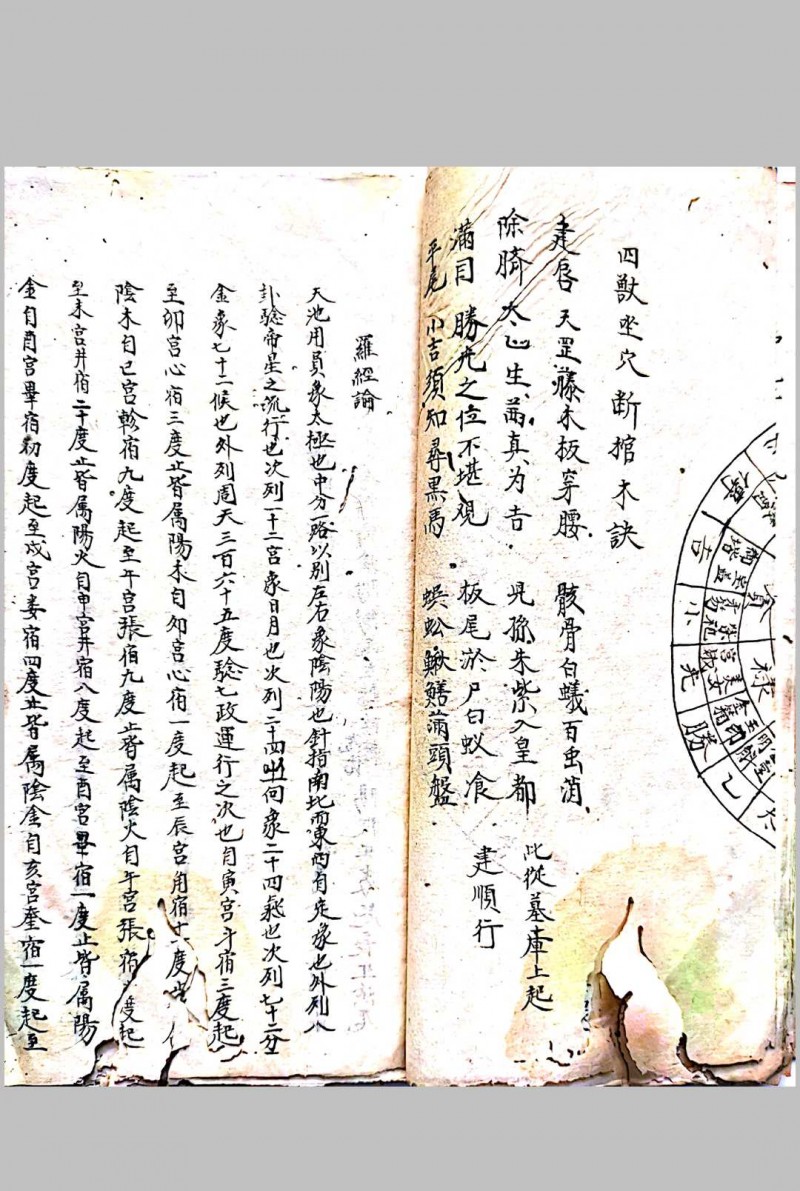 四獸坐穴斷棺木訣
建唇 天罡藤木板穿腰 骸骨白蟻百虫消
除臍 太山生苗真为吉 児孫朱紫入皇都
滿目 勝光之位不堪观 板尾於尸白蚁飡
平尾 小吉須知尋黑馬 蜈蚣鰍鱔滿頭盤
此從墓庫上起
建順行
羅經論
天池用員象太極也中分一路以別左右象陰陽也針指南北而東西自定象也外列八
卦騐帝星之流行也次列一十二宮象日月也次列二十四山向象二十四氣也次列七十二分
金象七十二候也外列周天三百六十五度騐七政運行之次也自寅宮斗宿三度起
至卯宮心宿三度止皆属陽木自卯宮心宿一度起至辰宮角宿十一度
陰木自巳宮軫宿九度起至午宮張宿九度止皆属陰火自午宮張宿 度起
至未宮井宿二十度止皆属陽火自申宮井宿八度起至酉宮畢宿一度止皆属陽
金自酉宮畢宿初度起至戍宮娄宿四度止皆属陰金自亥宮奎宿一度起至